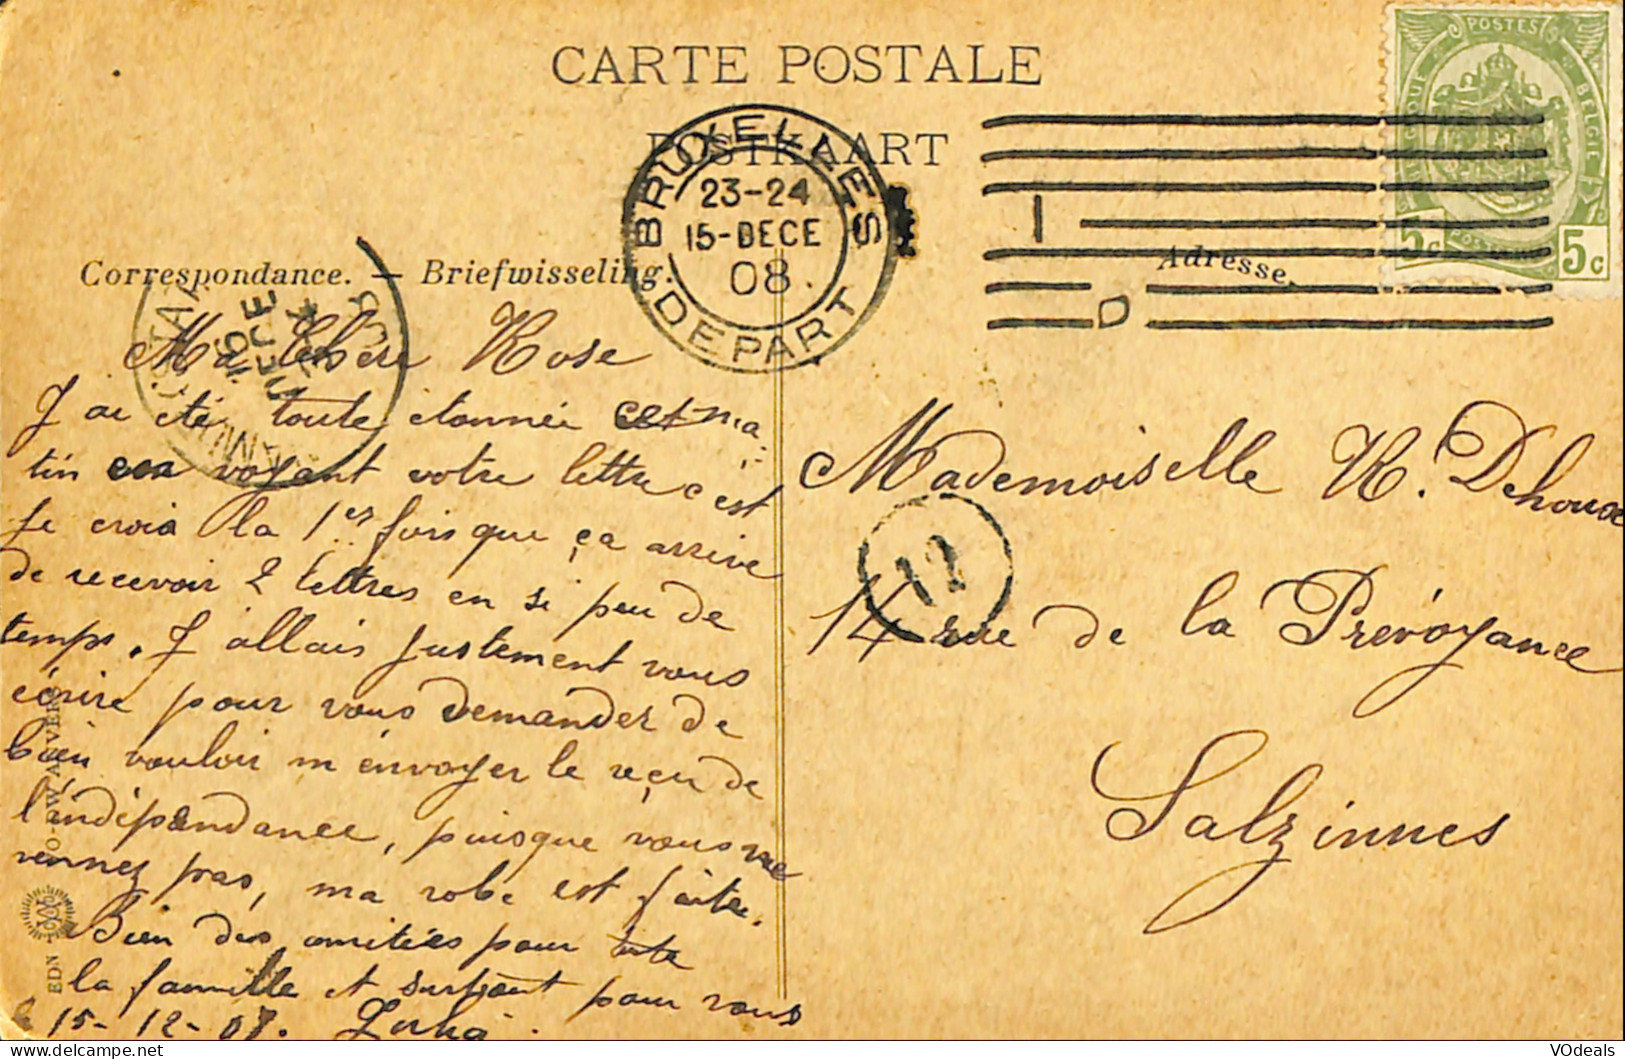 CARTE POSTALE
POSTKAART
BRUXELLES
23-24
15-DECE
08
DEPART
POSTES
BELGIE
5c 5c
Correspondance. — Briefwisseling.
Adresse.
Ma Chère Rose
J'ai été toute étonnée cet ma-
tin en voyant votre lettre c'est
je crois la 1er fois que ça arrive
de recevoir 2 lettres en si peu de
temps. J'allais justement vous
écrire pour vous demander de
bien vouloir m'envoyer le reçu de
l'indépendance, puisque vous ne
vennez pas, ma robe est faite.
Bien des amitiées pour toute
la famille et surtout pour vous
15-12-08.
Mademoiselle R. Dehoux
12
14 rue de la Prévoyance
Salzinnes
EDN
VOdeals